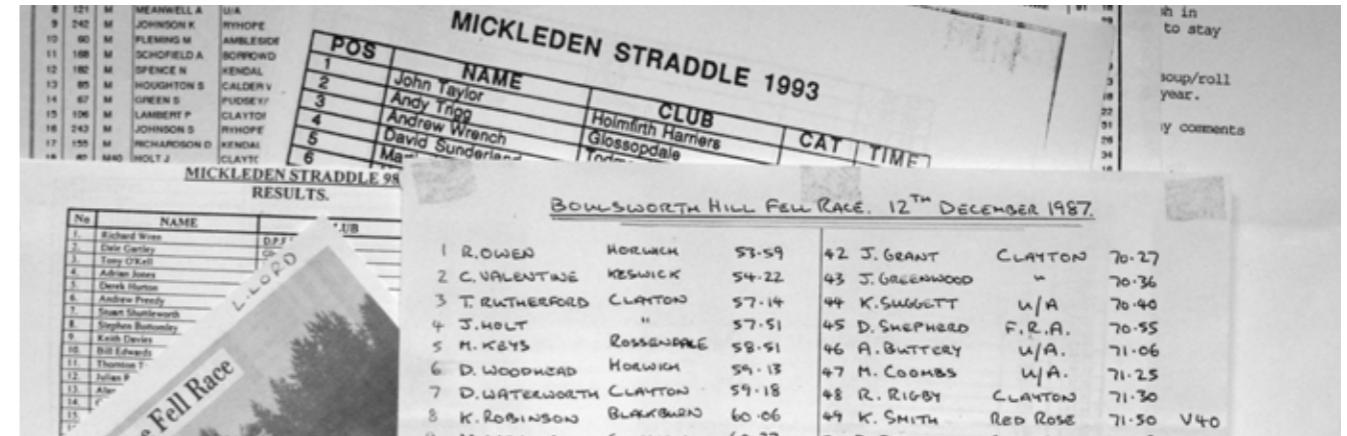 8 121 M MEANWELL A U/A
9 242 M JOHNSON K RYHOPE
10 60 M FLEMING M AMBLESIDE
11 168 M SCHOFIELD A BORROWD
12 182 M SPENCE N KENDAL
13 85 M HOUGHTON S CALDER V
14 67 M GREEN S PUDSEY/
15 106 M LAMBERT P CLAYTO
16 243 M JOHNSON S RYHOPE
17 155 M RICHARDSON D KENDAL
M40 HOLT J CLAYTO
MICKLEDEN STRADDLE 1993
POS NAME CLUB CAT TIME
1 John Taylor Holmfirth Harriers
2 Andy Trigg Glossopdale
3 Andrew Wrench
4 David Sunderland
5
6
sh in
to stay
soup/roll
year.
y comments
MICKLEDEN STRADDLE 98
RESULTS.
No NAME LUB
1. Richard Wren D.P.F
2. Dale Gartley
3. Tony O'Kell
4. Adrian Jones
5. Derek Hurton
6. Andrew Preedy
7. Stuart Shuttleworth
8. Stephen Bottomley
9. Keith Davies
10. Bill Edwards
11. Thornton
12. Julian
13.
14.
15.
L. LORD
Fell Race
BOULSWORTH HILL FELL RACE. 12TH DECEMBER 1987.
1 R. OWEN HORWICH 53.59
2 C. VALENTINE KESWICK 54.22
3 T. RUTHERFORD CLAYTON 57.14
4 J. HOLT " 57.51
5 M. KEYS ROSSENDALE 58.51
6 D. WOODHEAD HORWICH 59.13
7 D. WATERWORTH CLAYTON 59.18
8 K. ROBINSON BLACKBURN 60.06
42 J. GRANT CLAYTON 70.27
43 J. GREENWOOD " 70.36
44 K. SUGGETT U/A 70.40
45 D. SHEPHERD F.R.A. 70.55
46 A. BUTTERY U/A. 71.06
47 M. COOMBS U/A. 71.25
48 R. RIGBY CLAYTON 71.30
49 K. SMITH RED ROSE 71.50 V40